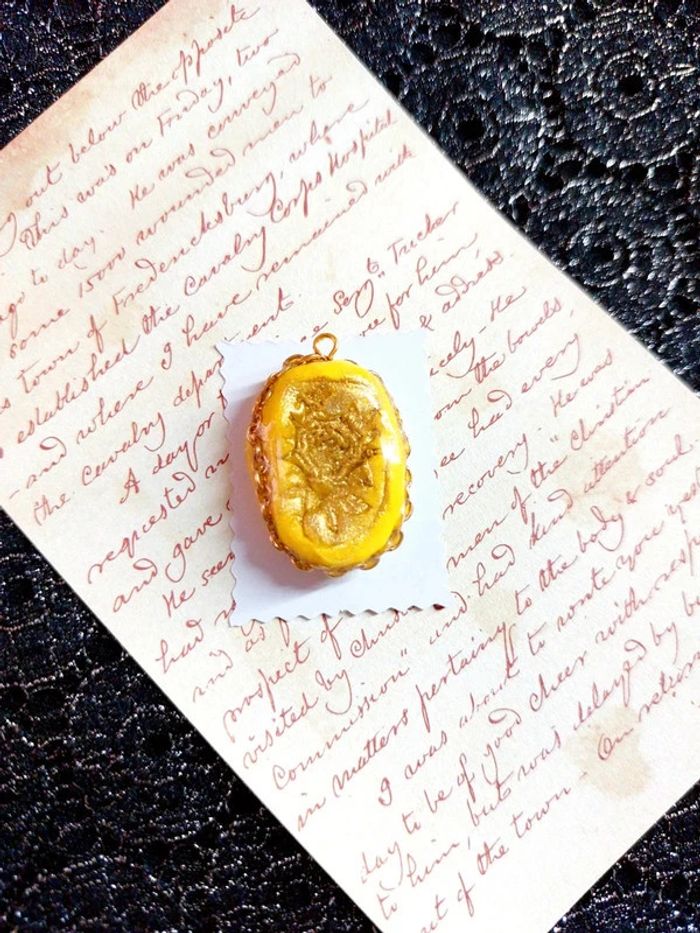 out below the opposite
This was on Friday, two
ago to day. He was conveyed
some 15000 wounded men to
s town of Fredericksburg, where
established the Cavalry Corps Hospital
- and where I have remained with
the cavalry depar ent.
A day or e Sergt. Tucker
requested m e for him,
and gave & address.
He see cely - He
had om the bowels,
and as ee had every
prospect of recovery. He was
visited by Chri men of the "Christian
Commission" and had kind attention
in matters pertaining to the body & soul.
I was about to write you yes
day to be of good cheer with resp
to him, but was delayed by b
out of the town - On return